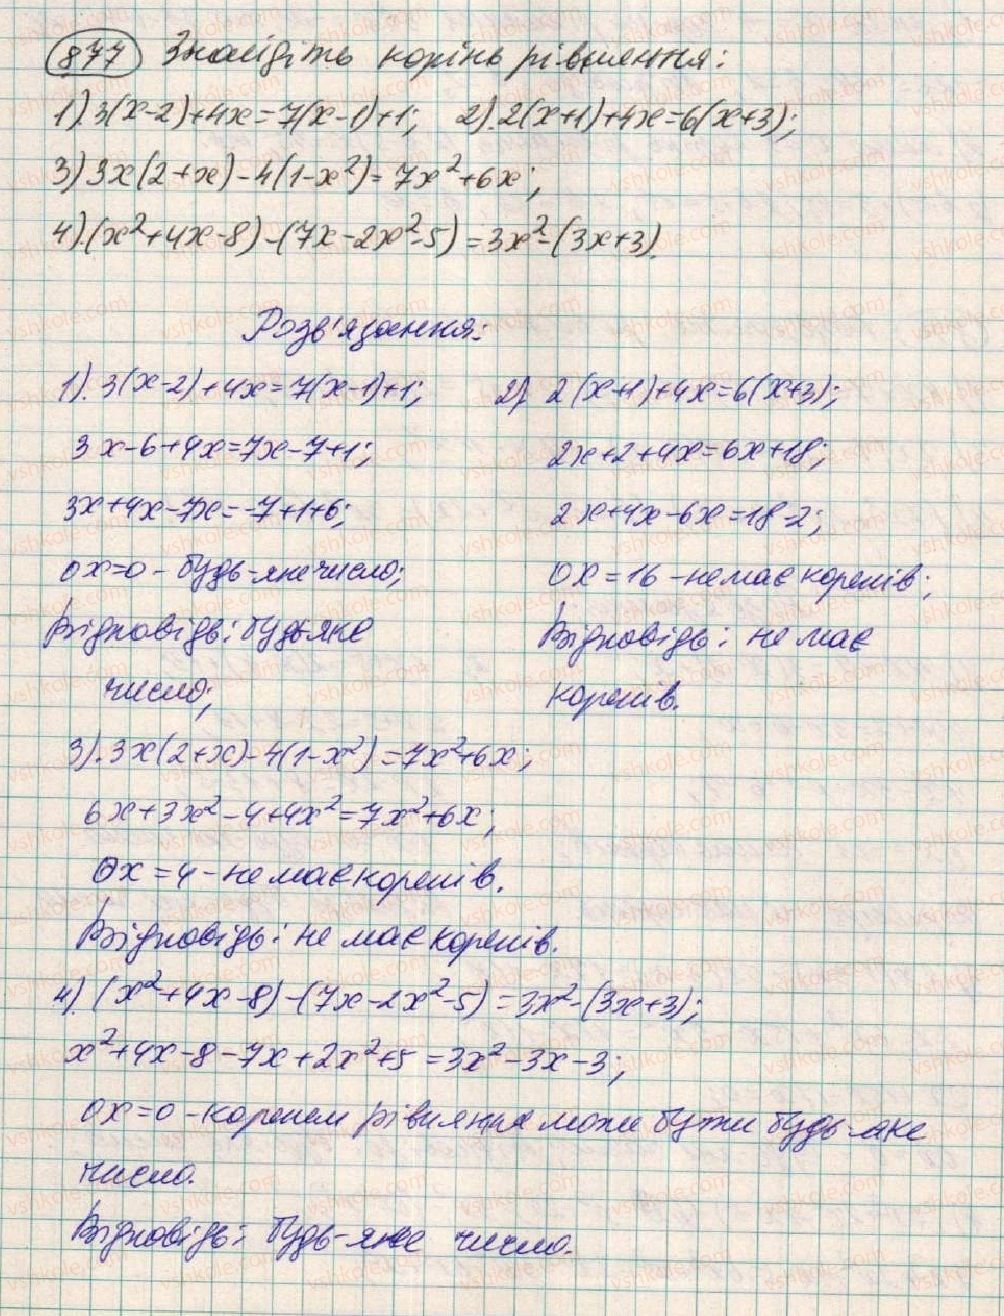 877 Знайдіть корінь рівняння:
1).3(x-2)+4x=7(x-1)+1; 2).2(x+1)+4x=6(x+3);
3) 3x(2+x)-4(1-x²)=7x²+6x;
4).(x²+4x-8)-(7x-2x²-5)=3x²-(3x+3).
Розв'язання:
1). 3(x-2)+4x=7(x-1)+1;
3x-6+4x=7x-7+1;
3x+4x-7x=-7+1+6;
0x=0 - будь-яке число;
Відповідь: будь-яке
число;
2). 2(x+1)+4x=6(x+3);
2x+2+4x=6x+18;
2x+4x-6x=18-2;
0x=16 - немає коренів;
Відповідь: немає
коренів.
3).3x(2+x)-4(1-x²)=7x²+6x;
6x+3x²-4+4x²=7x²+6x;
0x=4 - немає коренів.
Відповідь: немає коренів.
4). (x²+4x-8)-(7x-2x²-5)=3x²-(3x+3);
x²+4x-8-7x+2x²+5=3x²-3x-3;
0x=0 - коренем рівняння може бути будь-яке
число.
Відповідь: будь-яке число.